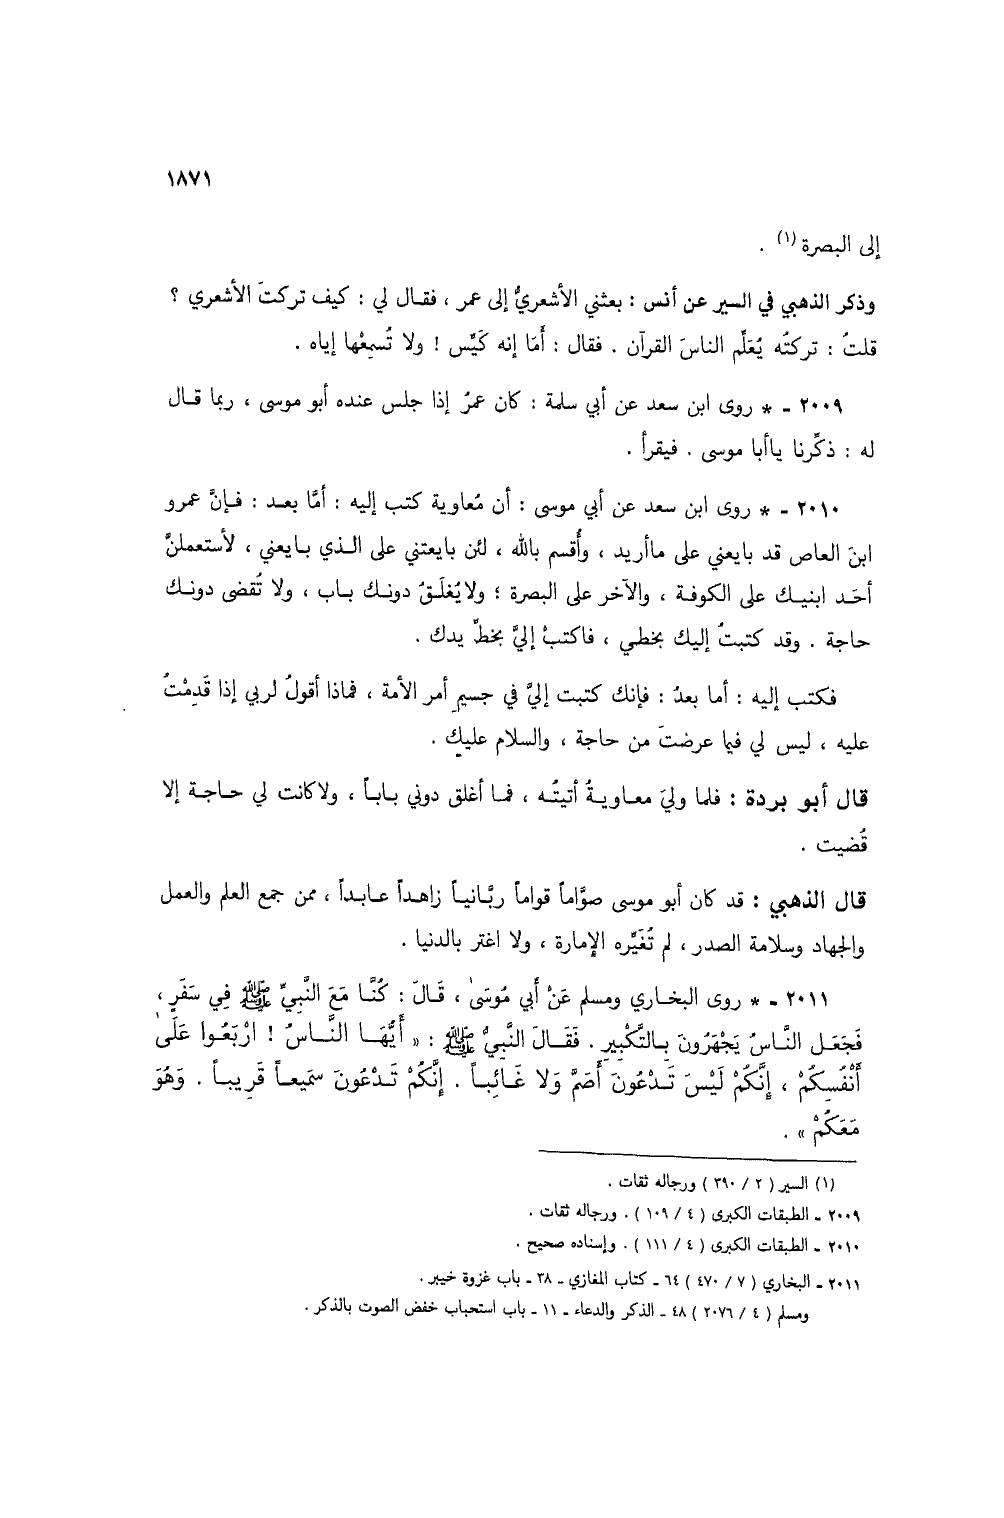 ١٨٧١
إلى البصرة (١) .
وذكر الذهبي في السير عن أنس : بعثني الأشعريُّ إلى عمر ، فقال لي : كيف تركتَ الأشعري ؟
قلتُ : تركتُه يُعَلِّم الناسَ القرآن . فقال : أَمَا إنه كَيِّس ! ولا تُسمِعْها إياه .
٢٠٠٩ ـ * روى ابن سعد عن أبي سلمة : كان عمرُ إذا جلس عنده أبو موسى ، ربما قال
له : ذكِّرنا ياأبا موسى . فيقرأ .
٢٠١٠ ـ * روى ابن سعد عن أبي موسى : أن مُعاوية كتب إليه : أمَّا بعد : فإنَّ عمرو
ابنَ العاص قد بايعني على ماأريد ، وأُقسم بالله ، لئن بايعتني على الذي بايعني ، لأستعملنَّ
أحَد ابنيك على الكوفة ، والآخر على البصرة ؛ ولايُغلَقُ دونك باب ، ولا تُقضى دونك
حاجة . وقد كتبتُ إليك بخطي ، فاكتبْ إليَّ بخطِّ يدك .
فكتب إليه : أما بعدُ : فإنك كتبت إليَّ في جسيمِ أمر الأمة ، فماذا أقولُ لربي إذا قَدِمْتُ
عليه ، ليس لي فيما عرضتَ من حاجة ، والسلام عليك .
قال أبو بردة : فلما وليَ معاويةُ أتيتُه ، فما أغلق دوني باباً ، ولاكانت لي حاجة إلا
قُضيت .
قال الذهبي : قد كان أبو موسى صوَّاماً قواماً ربَّانياً زاهداً عابداً ، ممن جمع العلم والعمل
والجهاد وسلامة الصدر ، لم تُغَيِّره الإمارة ، ولا اغتر بالدنيا .
٢٠١١ ـ * روى البخاري ومسلم عَنْ أَبي مُوسَىٰ ، قَالَ : كُنَّا مَعَ النَّبِيِّ ﷺ فِي سَفَرٍ ،
فَجَعَل النَّاسُ يَجْهَرُونَ بِالتَّكْبِيرِ . فَقَالَ النَّبِيُّ ﷺ : « أَيُّهَا النَّاسُ ! ارْبَعُوا عَلَىٰ
أَنْفُسِكُمْ ، إِنَّكُمْ لَيْسَ تَدْعُونَ أَصَمَّ وَلا غَائِباً . إِنَّكُمْ تَدْعُونَ سَمِيعاً قَرِيباً . وَهُوَ
مَعَكُمْ » .
(١) السير ( ٢ / ٣٩٠ ) ورجاله ثقات .
٢٠٠٩ ـ الطبقات الكبرى ( ٤ / ١٠٩ ) . ورجاله ثقات .
٢٠١٠ ـ الطبقات الكبرى ( ٤ / ١١١ ) . وإسناده صحيح .
٢٠١١ ـ البخاري ( ٧ / ٤٧٠ ) ٦٤ ـ كتاب المغازي ـ ٣٨ ـ باب غزوة خيبر .
ومسلم ( ٤ / ٢٠٧٦ ) ٤٨ ـ الذكر والدعاء ـ ١١ ـ باب استحباب خفض الصوت بالذكر .